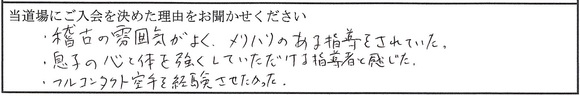 当道場にご入会を決めた理由をお聞かせください
・稽古の雰囲気がよく、メリハリのある指導をされていた。
・息子の心と体を強くしていただける指導者と感じた。
・フルコンタクト空手を経験させたかった。